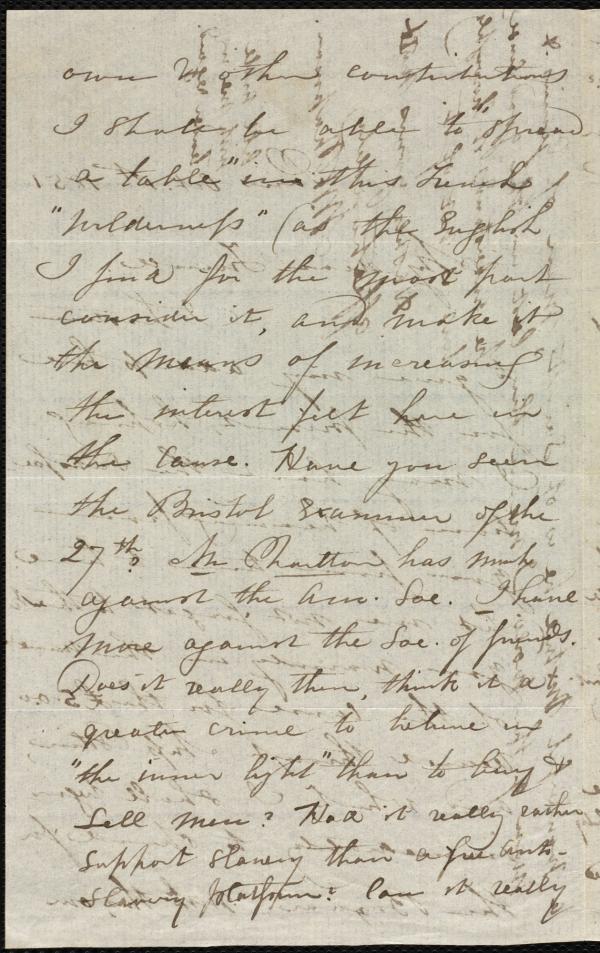 own & other contributions
I shall be able to "spread
a table" in this French
"wilderness" (as the English
I find for the most part
consider it, and make it
the means of increasing
the interest felt here in
the Cause. Have you seen
the Bristol Examiner of the
27th? Mr. has much
against the Am. Soc. I have
more against the Soc. of friends.
Does it really then, think it a
greater crime to believe in
"the inner light" than to buy &
Sell men? Had it really rather
support slavery than a free anti-
slavery platform? Can it really